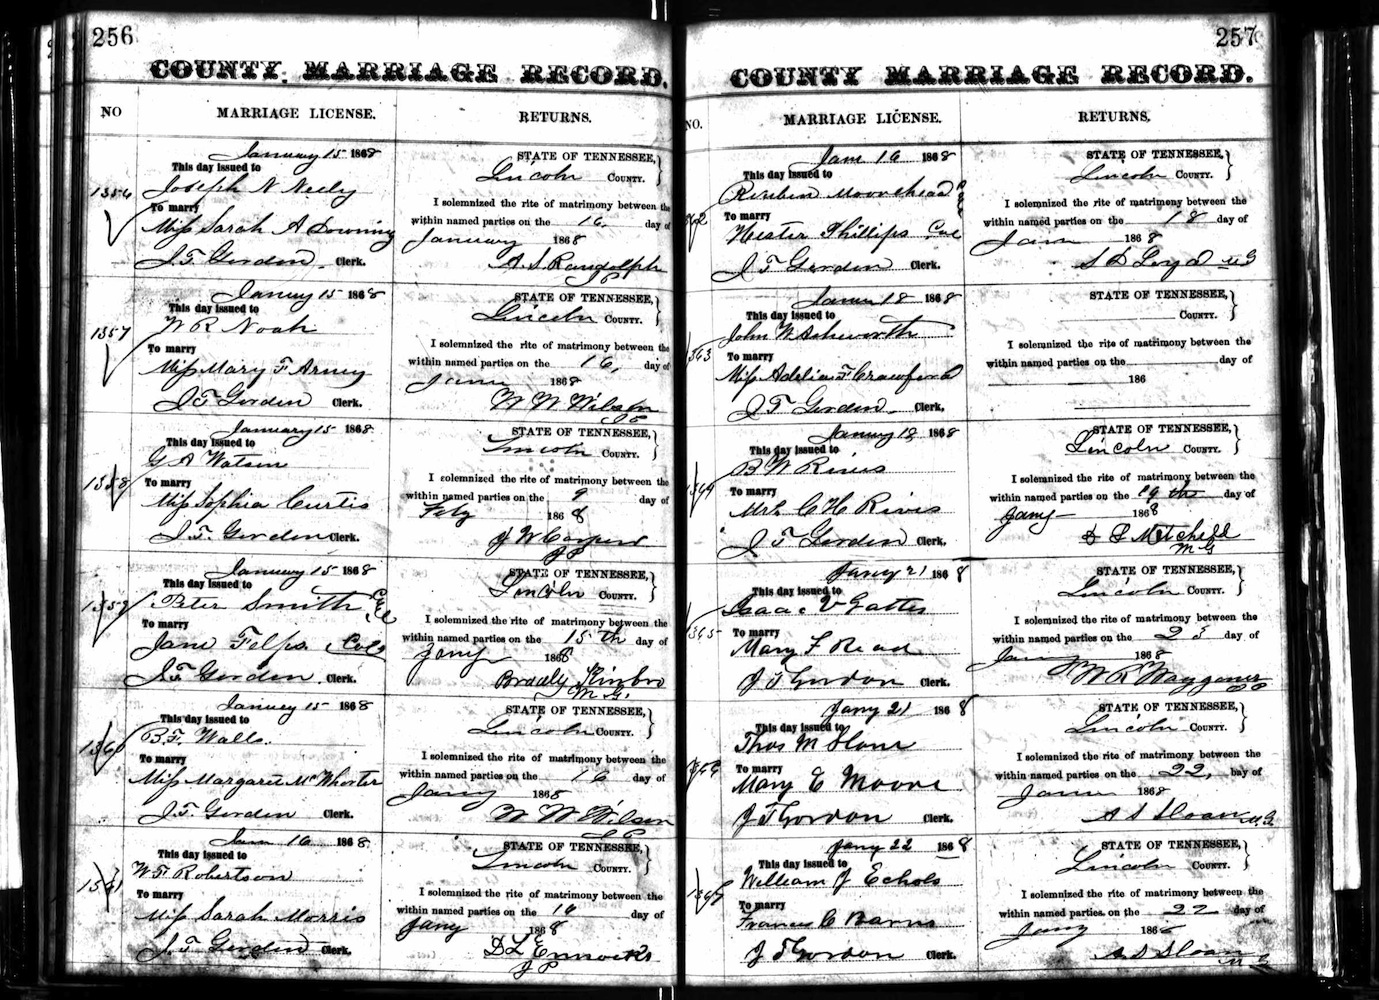 256
COUNTY MARRIAGE RECORD.
NO MARRIAGE LICENSE. RETURNS.
January 15 1868
This day issued to
1356 Joseph N Neely
To marry
Miss Sarah A Downing
J. T. Gordon Clerk.
STATE OF TENNESSEE,
Lincoln COUNTY.
I solemnized the rite of matrimony between the
within named parties on the 16, day of
January 1868
A. S. Randolph
JP
January 15 1868
This day issued to
1357 W R Noah
To marry
Miss Mary F Armey
J T Gordon Clerk.
STATE OF TENNESSEE,
Lincoln COUNTY.
I solemnized the rite of matrimony between the
within named parties on the 16, day of
Janu 1868
W W Wilson
J P
January 15 1868
This day issued to
1358 G A Watson
To marry
Miss Sophia Curtis
J. T. Gordon Clerk.
STATE OF TENNESSEE,
Lincoln COUNTY.
I solemnized the rite of matrimony between the
within named parties on the 9 day of
Feby 1868
J W
JP
January 15 1868
This day issued to
1359 Peter Smith Col
To marry
Jane Felps Col
J. T. Gordon Clerk.
STATE OF TENNESSEE,
Lincoln COUNTY.
I solemnized the rite of matrimony between the
within named parties on the 15th day of
Jany 1868
Bradly Kinbro
M. G.
January 15 1868
This day issued to
1360 B. F. Walls.
To marry
Miss Margaret McWhorter
J. T. Gordon Clerk.
STATE OF TENNESSEE,
Lincoln COUNTY.
I solemnized the rite of matrimony between the
within named parties on the 16 day of
Jany 1868
W W Wilson
J P
Jan 16 1868
This day issued to
1361 W F Robertson
To marry
Miss Sarah Morris
J. T. Gordon Clerk.
STATE OF TENNESSEE,
Lincoln COUNTY.
I solemnized the rite of matrimony between the
within named parties on the 16 day of
Jany 1868
D L
JP
257
COUNTY MARRIAGE RECORD.
NO. MARRIAGE LICENSE. RETURNS.
Jan 16 1868
This day issued to
Reuben Moorehead Col
To marry
Hester Phillips Col
J T Gordon Clerk.
STATE OF TENNESSEE,
Lincoln COUNTY.
I solemnized the rite of matrimony between the
within named parties on the 18 day of
Janu 1868
S D Loyd MG
Janu 18 1868
This day issued to
1363 John W Ashworth
To marry
Miss Adelia F Crawford
J T Gordon Clerk.
STATE OF TENNESSEE,
COUNTY.
I solemnized the rite of matrimony between the
within named parties on the day of
186
January 18 1868
This day issued to
1364 B W Rives
To marry
Mrs C H Rives
J T Gordon Clerk.
STATE OF TENNESSEE,
Lincoln COUNTY.
I solemnized the rite of matrimony between the
within named parties on the 19th day of
Jany 1868
Mitchell
M G
Jany 21 1868
This day issued to
1365 Isaac V Gattis
To marry
Mary F Read
J T Gordon Clerk.
STATE OF TENNESSEE,
Lincoln COUNTY.
I solemnized the rite of matrimony between the
within named parties on the 23 day of
Jany 1868
W R Waggoner
JP
Jany 21 1868
This day issued to
Thos M Slone
To marry
Mary E Moore
J T Gordon Clerk.
STATE OF TENNESSEE,
Lincoln COUNTY.
I solemnized the rite of matrimony between the
within named parties on the 22, bay of
Janu 1868
A S Sloan M. G.
Jany 22 1868
This day issued to
1367 William J Echols
To marry
Frances C Barns
J T Gordon Clerk.
STATE OF TENNESSEE,
Lincoln COUNTY.
I solemnized the rite of matrimony between the
within named parties on the 22 day of
Jany 1868
A S Sloan M G